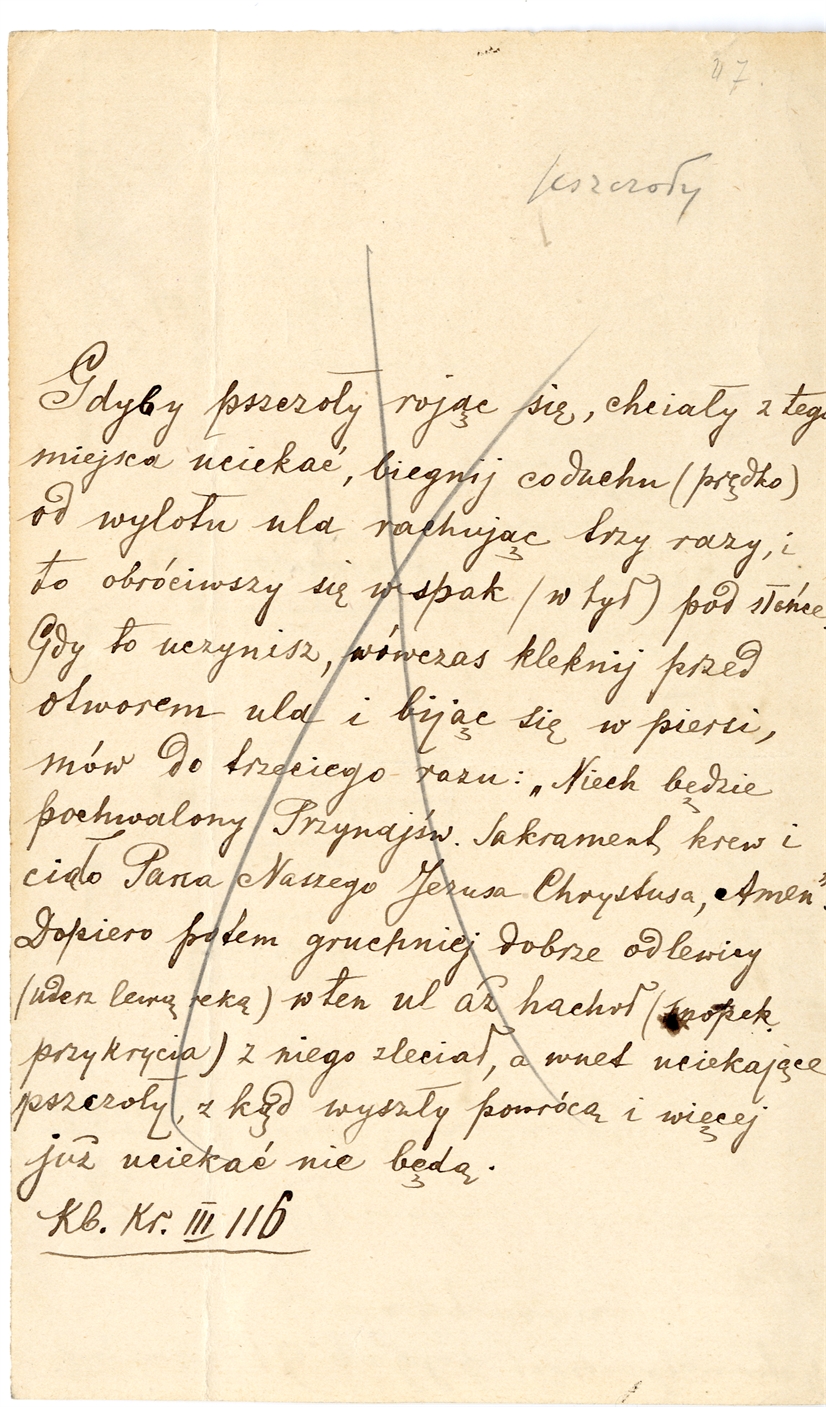 47.
pszczoły
Gdyby pszczoły rojąc się, chciały z tego
miejsca uciekać, biegnij coduchu (prędko)
od wylotu ula rachując trzy razy, i
to obróciwszy się wspak (w tył) pod słońce.
Gdy to uczynisz, wówczas kleknij przed
otworem ula i bijąc się w piersi,
mów do trzeciego razu: „Niech będzie
pochwalony Przynajśw. Sakrament, krew i
ciało Pana Naszego Jezusa Chrystusa, Amen".
Dopiero potem gruchniej dobrze odlewicy
(uderz lewą ręką) w ten ul aż hachoł (snopek
przykrycia) z niego zleciał, a wnet uciekające
pszczoły, z kąd wyszły powrócą i więcej
już uciekać nie będą.
Kb. Kr. III 116